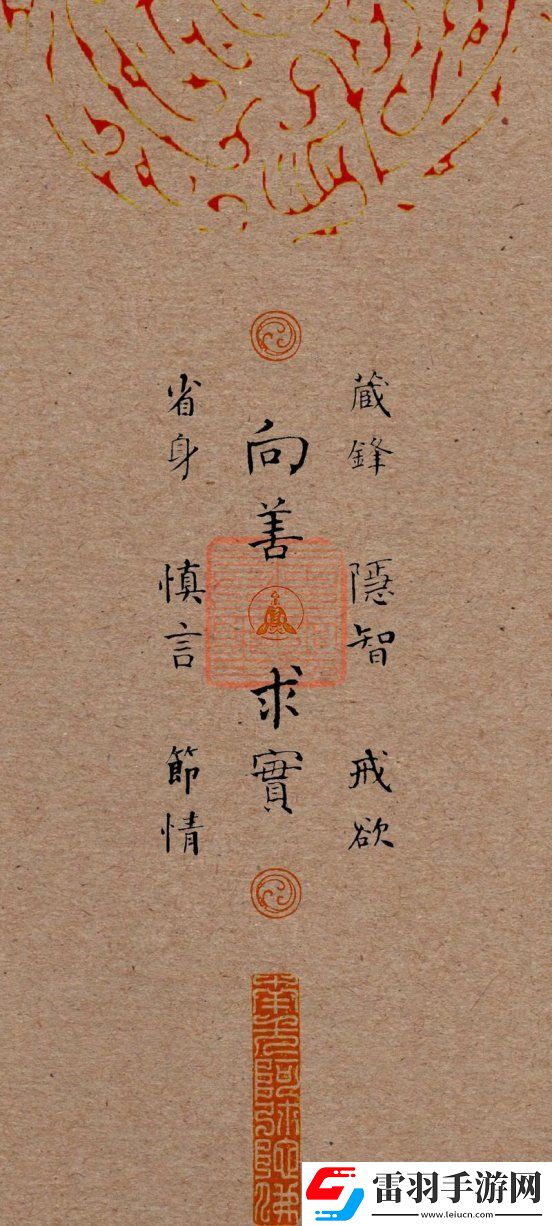 藏鋒 隱智 戒欲
向善 求實
省身 慎言 節情
南无阿弥陀佛
雷羽手游网
www.leiucn.com